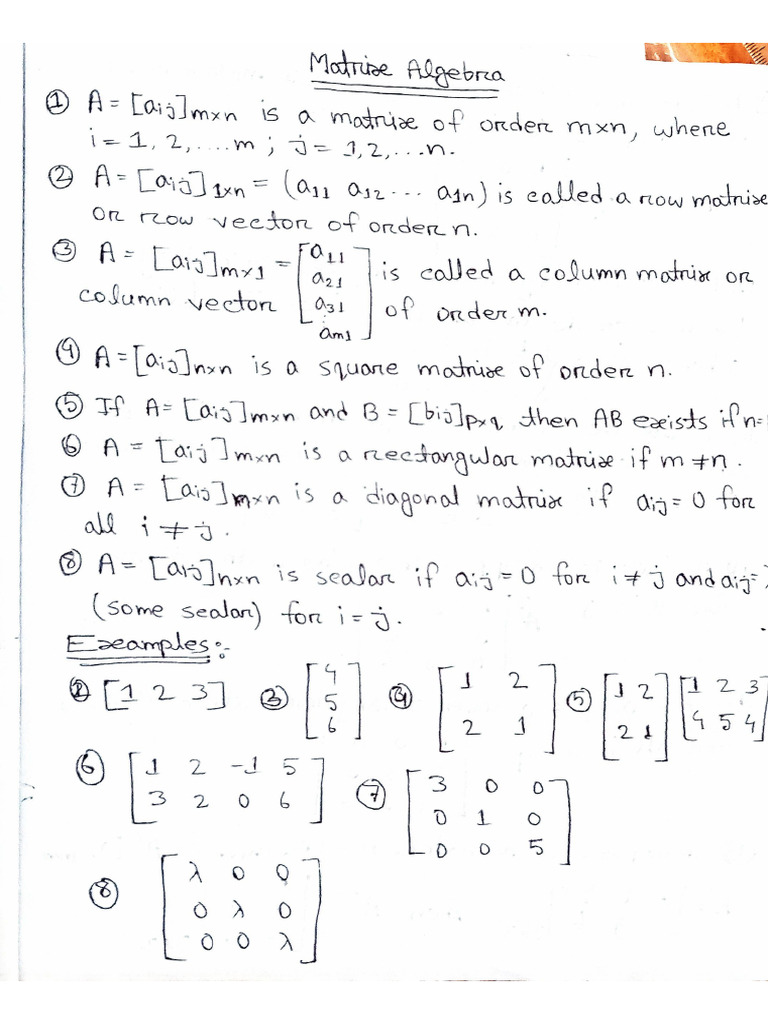 Matrix Algebra
① A = [aij]m×n is a matrix of order m×n, where
i = 1, 2, .... m ; j = 1,2, ... n.
② A = [aij]1×n = (a11 a12 ... a1n) is called a row matrix
or row vector of order n.
③ A = [aij]m×1 = [a11 a21 a31 : am1] is called a column matrix or
column vector of order m.
④ A = [aij]n×n is a square matrix of order n.
⑤ If A = [aij]m×n and B = [bij]p×q then AB exists if n=
⑥ A = [aij]m×n is a rectangular matrix if m ≠ n.
⑦ A = [aij]m×n is a diagonal matrix if aij = 0 for
all i ≠ j.
⑧ A = [aij]n×n is scalar if aij = 0 for i ≠ j and aij =
(some scalar) for i = j.
Examples:-
② [1 2 3] ③ [4 5 6] ④ [1 2 2 1] ⑤ [1 2 2 1] [1 2 3 4 5 4]
⑥ [1 2 -1 5 3 2 0 6] ⑦ [3 0 0 0 1 0 0 0 5]
⑧ [λ 0 0 0 λ 0 0 0 λ]